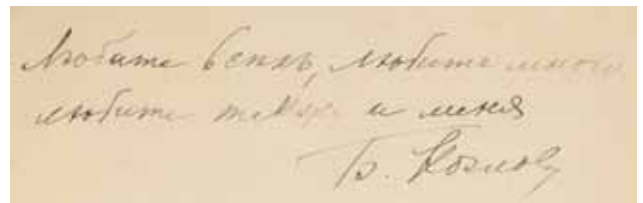 Любите всѣхъ, любите много
любите также и меня
Бр. Козловъ